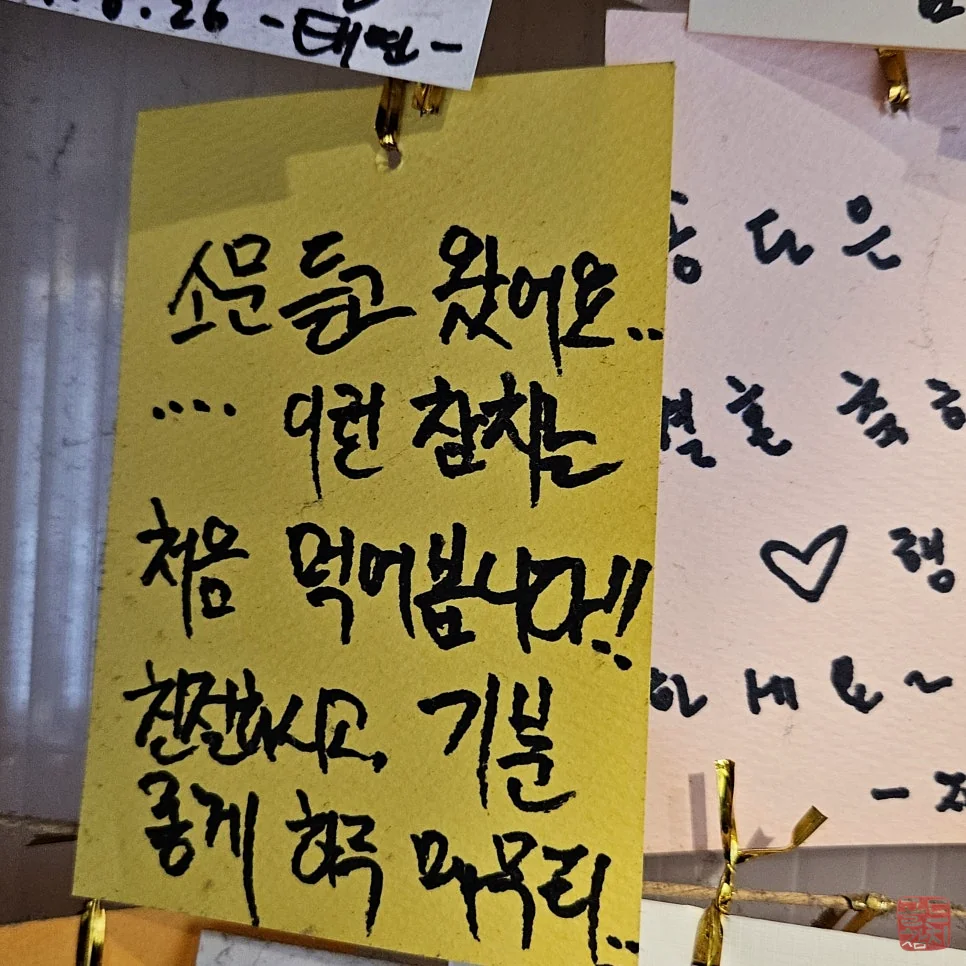 .26 -태면-
소문듣고 왔어요..
.... 이런 참치는
처음 먹어봅니다!!
친절하시고, 기분
좋게 하루 마무리..
은
결혼 축하
♡ 행
하세요~